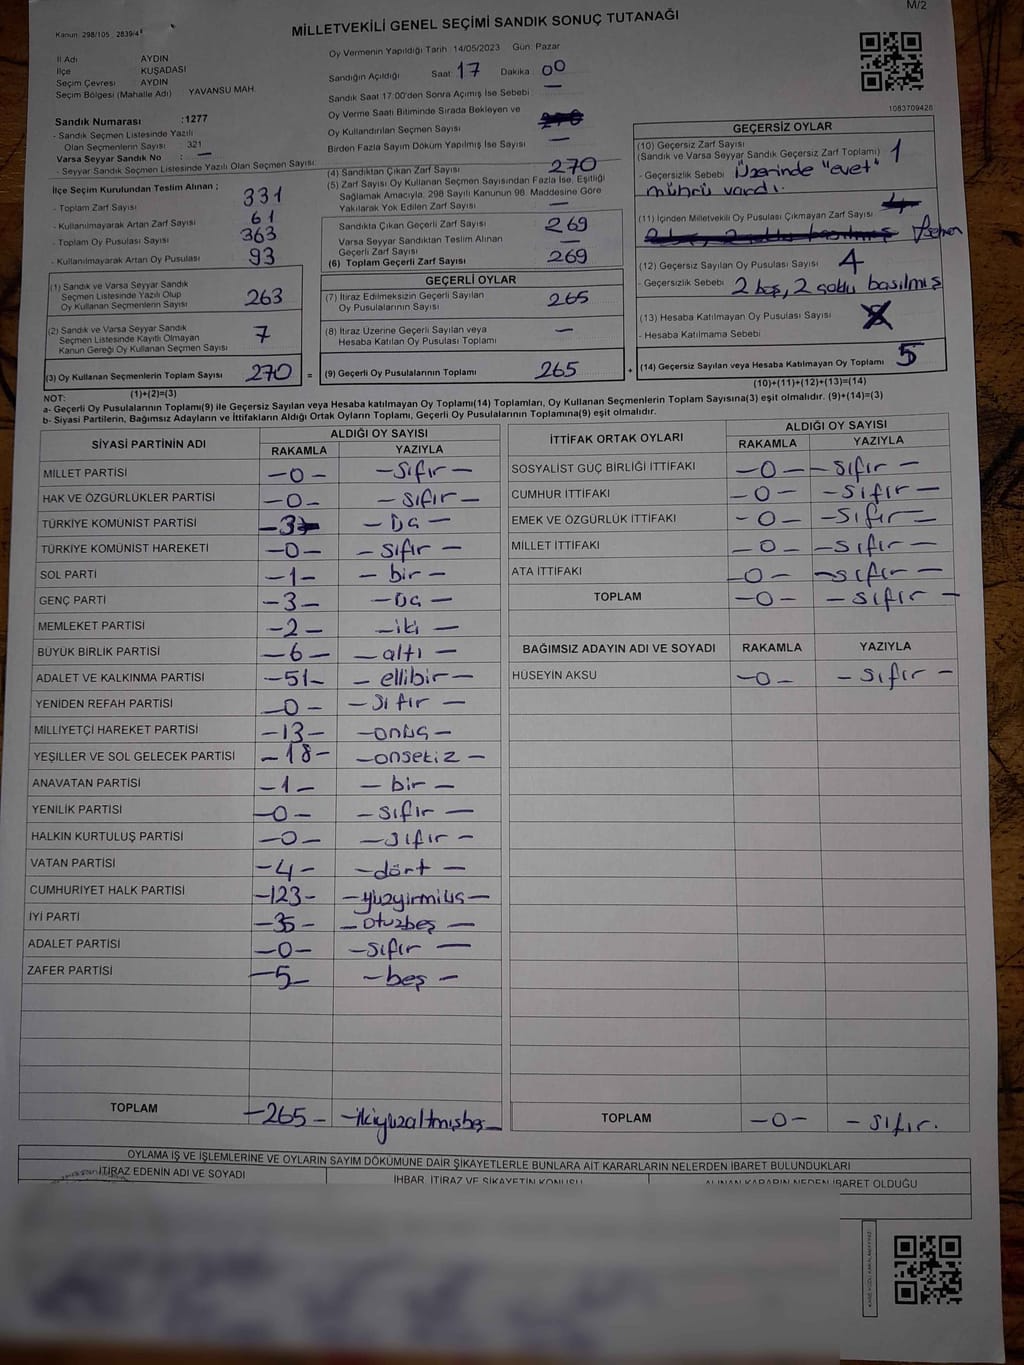 M/2
Kanun 298/105, 2839/4
MİLLETVEKİLİ GENEL SEÇİMİ SANDIK SONUÇ TUTANAĞI
İl Adı AYDIN
İlçe KUŞADASI
Seçim Çevresi AYDIN
Seçim Bölgesi (Mahalle Adı) YAVANSU MAH.
Sandık Numarası :1277
- Sandık Seçmen Listesinde Yazılı
Olan Seçmenlerin Sayısı 321
Varsa Seyyar Sandık No : —
- Seyyar Sandık Seçmen Listesinde Yazılı Olan Seçmen Sayısı:
Oy Vermenin Yapıldığı Tarih 14/05/2023 Gün: Pazar
Sandığın Açıldığı Saat 17 Dakika 00
Sandık Saat 17:00'den Sonra Açılmış İse Sebebi —
Oy Verme Saati Bitiminde Sırada Bekleyen ve
Oy Kullandırılan Seçmen Sayısı
Birden Fazla Sayım Döküm Yapılmış İse Sayısı —
1083709426
İlçe Seçim Kurulundan Teslim Alınan ;
- Toplam Zarf Sayısı 331
- Kullanılmayarak Artan Zarf Sayısı 61
- Toplam Oy Pusulası Sayısı 363
- Kullanılmayarak Artan Oy Pusulası 93
(1) Sandık ve Varsa Seyyar Sandık
Seçmen Listesinde Yazılı Olup
Oy Kullanan Seçmenlerin Sayısı 263
(2) Sandık ve Varsa Seyyar Sandık
Seçmen Listesinde Kayıtlı Olmayan
Kanun Gereği Oy Kullanan Seçmen Sayısı 7
(3) Oy Kullanan Seçmenlerin Toplam Sayısı 270 =
(1)+(2)=(3)
(4) Sandıktan Çıkan Zarf Sayısı 270
(5) Zarf Sayısı Oy Kullanan Seçmen Sayısından Fazla İse, Eşitliği
Sağlamak Amacıyla, 298 Sayılı Kanunun 98. Maddesine Göre
Yakılarak Yok Edilen Zarf Sayısı —
Sandıkta Çıkan Geçerli Zarf Sayısı 269
Varsa Seyyar Sandıktan Teslim Alınan
Geçerli Zarf Sayısı —
(6) Toplam Geçerli Zarf Sayısı 269
GEÇERLİ OYLAR
(7) İtiraz Edilmeksizin Geçerli Sayılan
Oy Pusulalarının Sayısı 265
(8) İtiraz Üzerine Geçerli Sayılan veya
Hesaba Katılan Oy Pusulası Toplamı —
(9) Geçerli Oy Pusulalarının Toplamı 265 +
GEÇERSİZ OYLAR
(10) Geçersiz Zarf Sayısı
(Sandık ve Varsa Seyyar Sandık Geçersiz Zarf Toplamı) 1
- Geçersizlik Sebebi Üzerinde "evet"
mührü vardı.
(11) İçinden Milletvekili Oy Pusulası Çıkmayan Zarf Sayısı
(12) Geçersiz Sayılan Oy Pusulası Sayısı 4
- Geçersizlik Sebebi 2 boş, 2 çoklu basılmış
(13) Hesaba Katılmayan Oy Pusulası Sayısı
- Hesaba Katılmama Sebebi
(14) Geçersiz Sayılan veya Hesaba Katılmayan Oy Toplamı 5
(10)+(11)+(12)+(13)=(14)
NOT:
a- Geçerli Oy Pusulalarının Toplamı(9) ile Geçersiz Sayılan veya Hesaba katılmayan Oy Toplamı(14) Toplamları, Oy Kullanan Seçmenlerin Toplam Sayısına(3) eşit olmalıdır. (9)+(14)=(3)
b- Siyasi Partilerin, Bağımsız Adayların ve İttifakların Aldığı Ortak Oyların Toplamı, Geçerli Oy Pusulalarının Toplamına(9) eşit olmalıdır.
SİYASİ PARTİNİN ADI ALDIĞI OY SAYISI
RAKAMLA YAZIYLA
MİLLET PARTİSİ -0- -sıfır-
HAK VE ÖZGÜRLÜKLER PARTİSİ -0- -sıfır-
TÜRKİYE KOMÜNİST PARTİSİ -3- -üç-
TÜRKİYE KOMÜNİST HAREKETİ -0- -sıfır-
SOL PARTİ -1- -bir-
GENÇ PARTİ -3- -üç-
MEMLEKET PARTİSİ -2- -iki-
BÜYÜK BİRLİK PARTİSİ -6- -altı-
ADALET VE KALKINMA PARTİSİ -51- -ellibir-
YENİDEN REFAH PARTİSİ -0- -sıfır-
MİLLİYETÇİ HAREKET PARTİSİ -13- -onüç-
YEŞİLLER VE SOL GELECEK PARTİSİ -18- -onsekiz-
ANAVATAN PARTİSİ -1- -bir-
YENİLİK PARTİSİ -0- -sıfır-
HALKIN KURTULUŞ PARTİSİ -0- -sıfır-
VATAN PARTİSİ -4- -dört-
CUMHURİYET HALK PARTİSİ -123- -yüzyirmiüç-
İYİ PARTİ -35- -otuzbeş-
ADALET PARTİSİ -0- -sıfır-
ZAFER PARTİSİ -5- -beş-
TOPLAM -265- -ikiyüzaltmışbeş-
İTTİFAK ORTAK OYLARI ALDIĞI OY SAYISI
RAKAMLA YAZIYLA
SOSYALİST GÜÇ BİRLİĞİ İTTİFAKI -0- -sıfır-
CUMHUR İTTİFAKI -0- -sıfır-
EMEK VE ÖZGÜRLÜK İTTİFAKI -0- -sıfır-
MİLLET İTTİFAKI -0- -sıfır-
ATA İTTİFAKI -0- -sıfır-
TOPLAM -0- -sıfır-
BAĞIMSIZ ADAYIN ADI VE SOYADI RAKAMLA YAZIYLA
HÜSEYİN AKSU -0- -sıfır-
TOPLAM -0- -sıfır.
OYLAMA İŞ VE İŞLEMLERİNE VE OYLARIN SAYIM DÖKÜMÜNE DAİR ŞİKAYETLERLE BUNLARA AİT KARARLARIN NELERDEN İBARET BULUNDUKLARI
İTİRAZ EDENİN ADI VE SOYADI
İHBAR, İTİRAZ VE ŞİKAYETİN KONUSU
ALINAN KARARIN NEDEN İBARET OLDUĞU